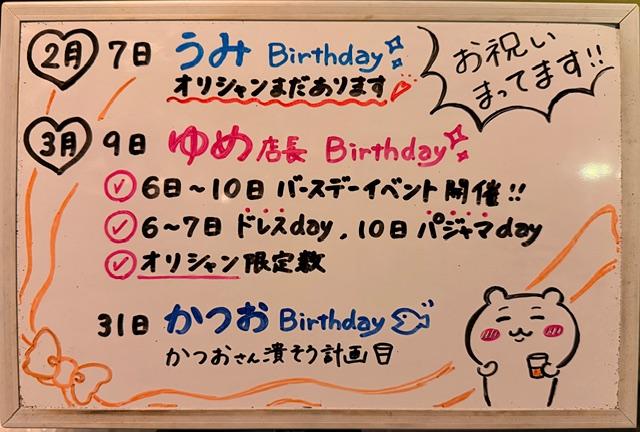 2月 7日 うみ Birthday
オリシャンまだあります
お祝い
まってます!!
3月 9日 ゆめ店長 Birthday
6日～10日 バースデーイベント開催!!
6～7日 ドレスday, 10日 パジャマday
オリシャン限定数
31日 かつお Birthday
かつおさん潰そう計画